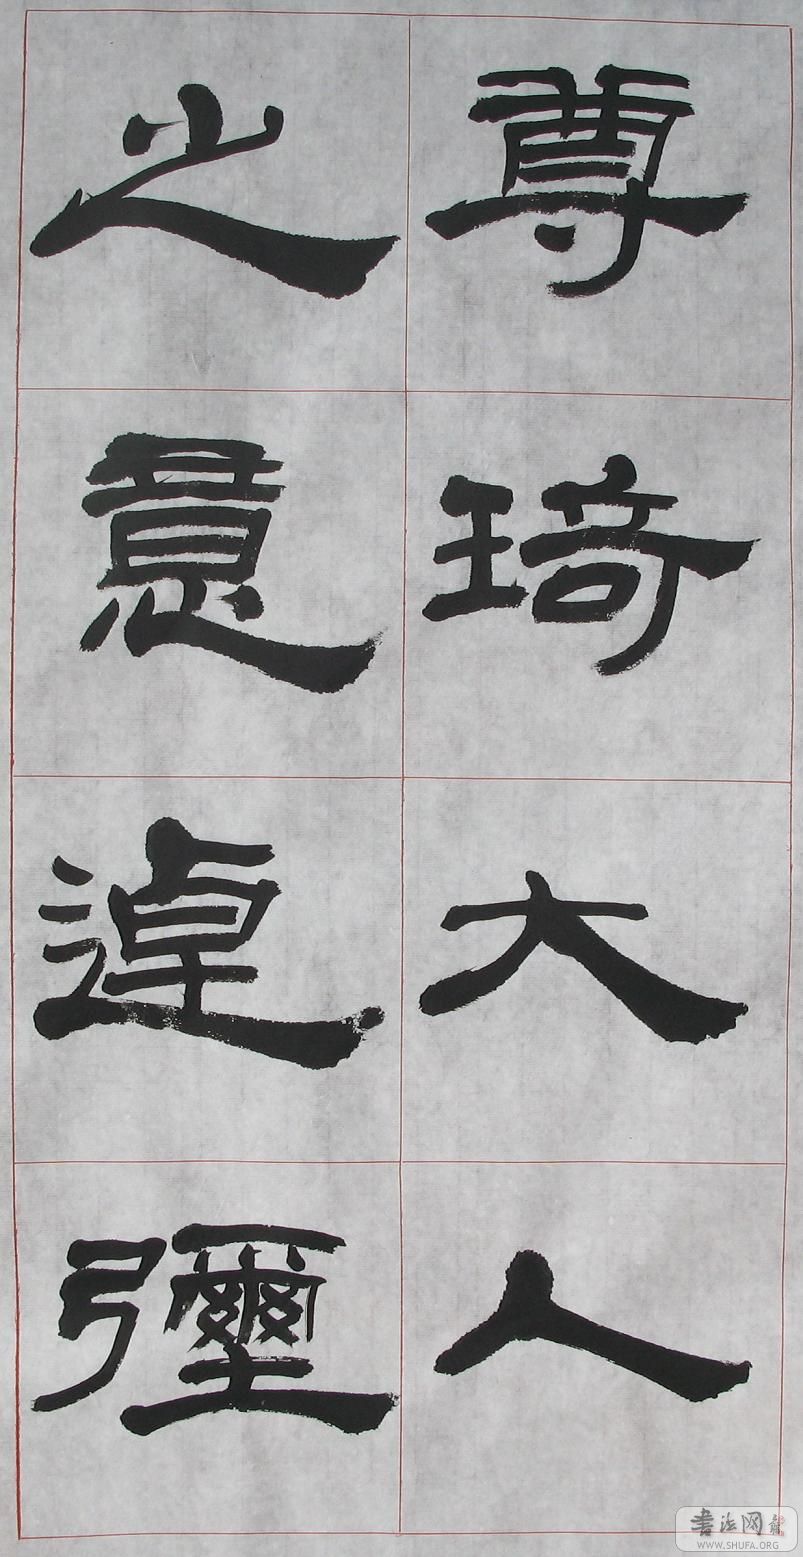 尊琦大人
之意逴彌
書法网
WWW.SHUFA.ORG